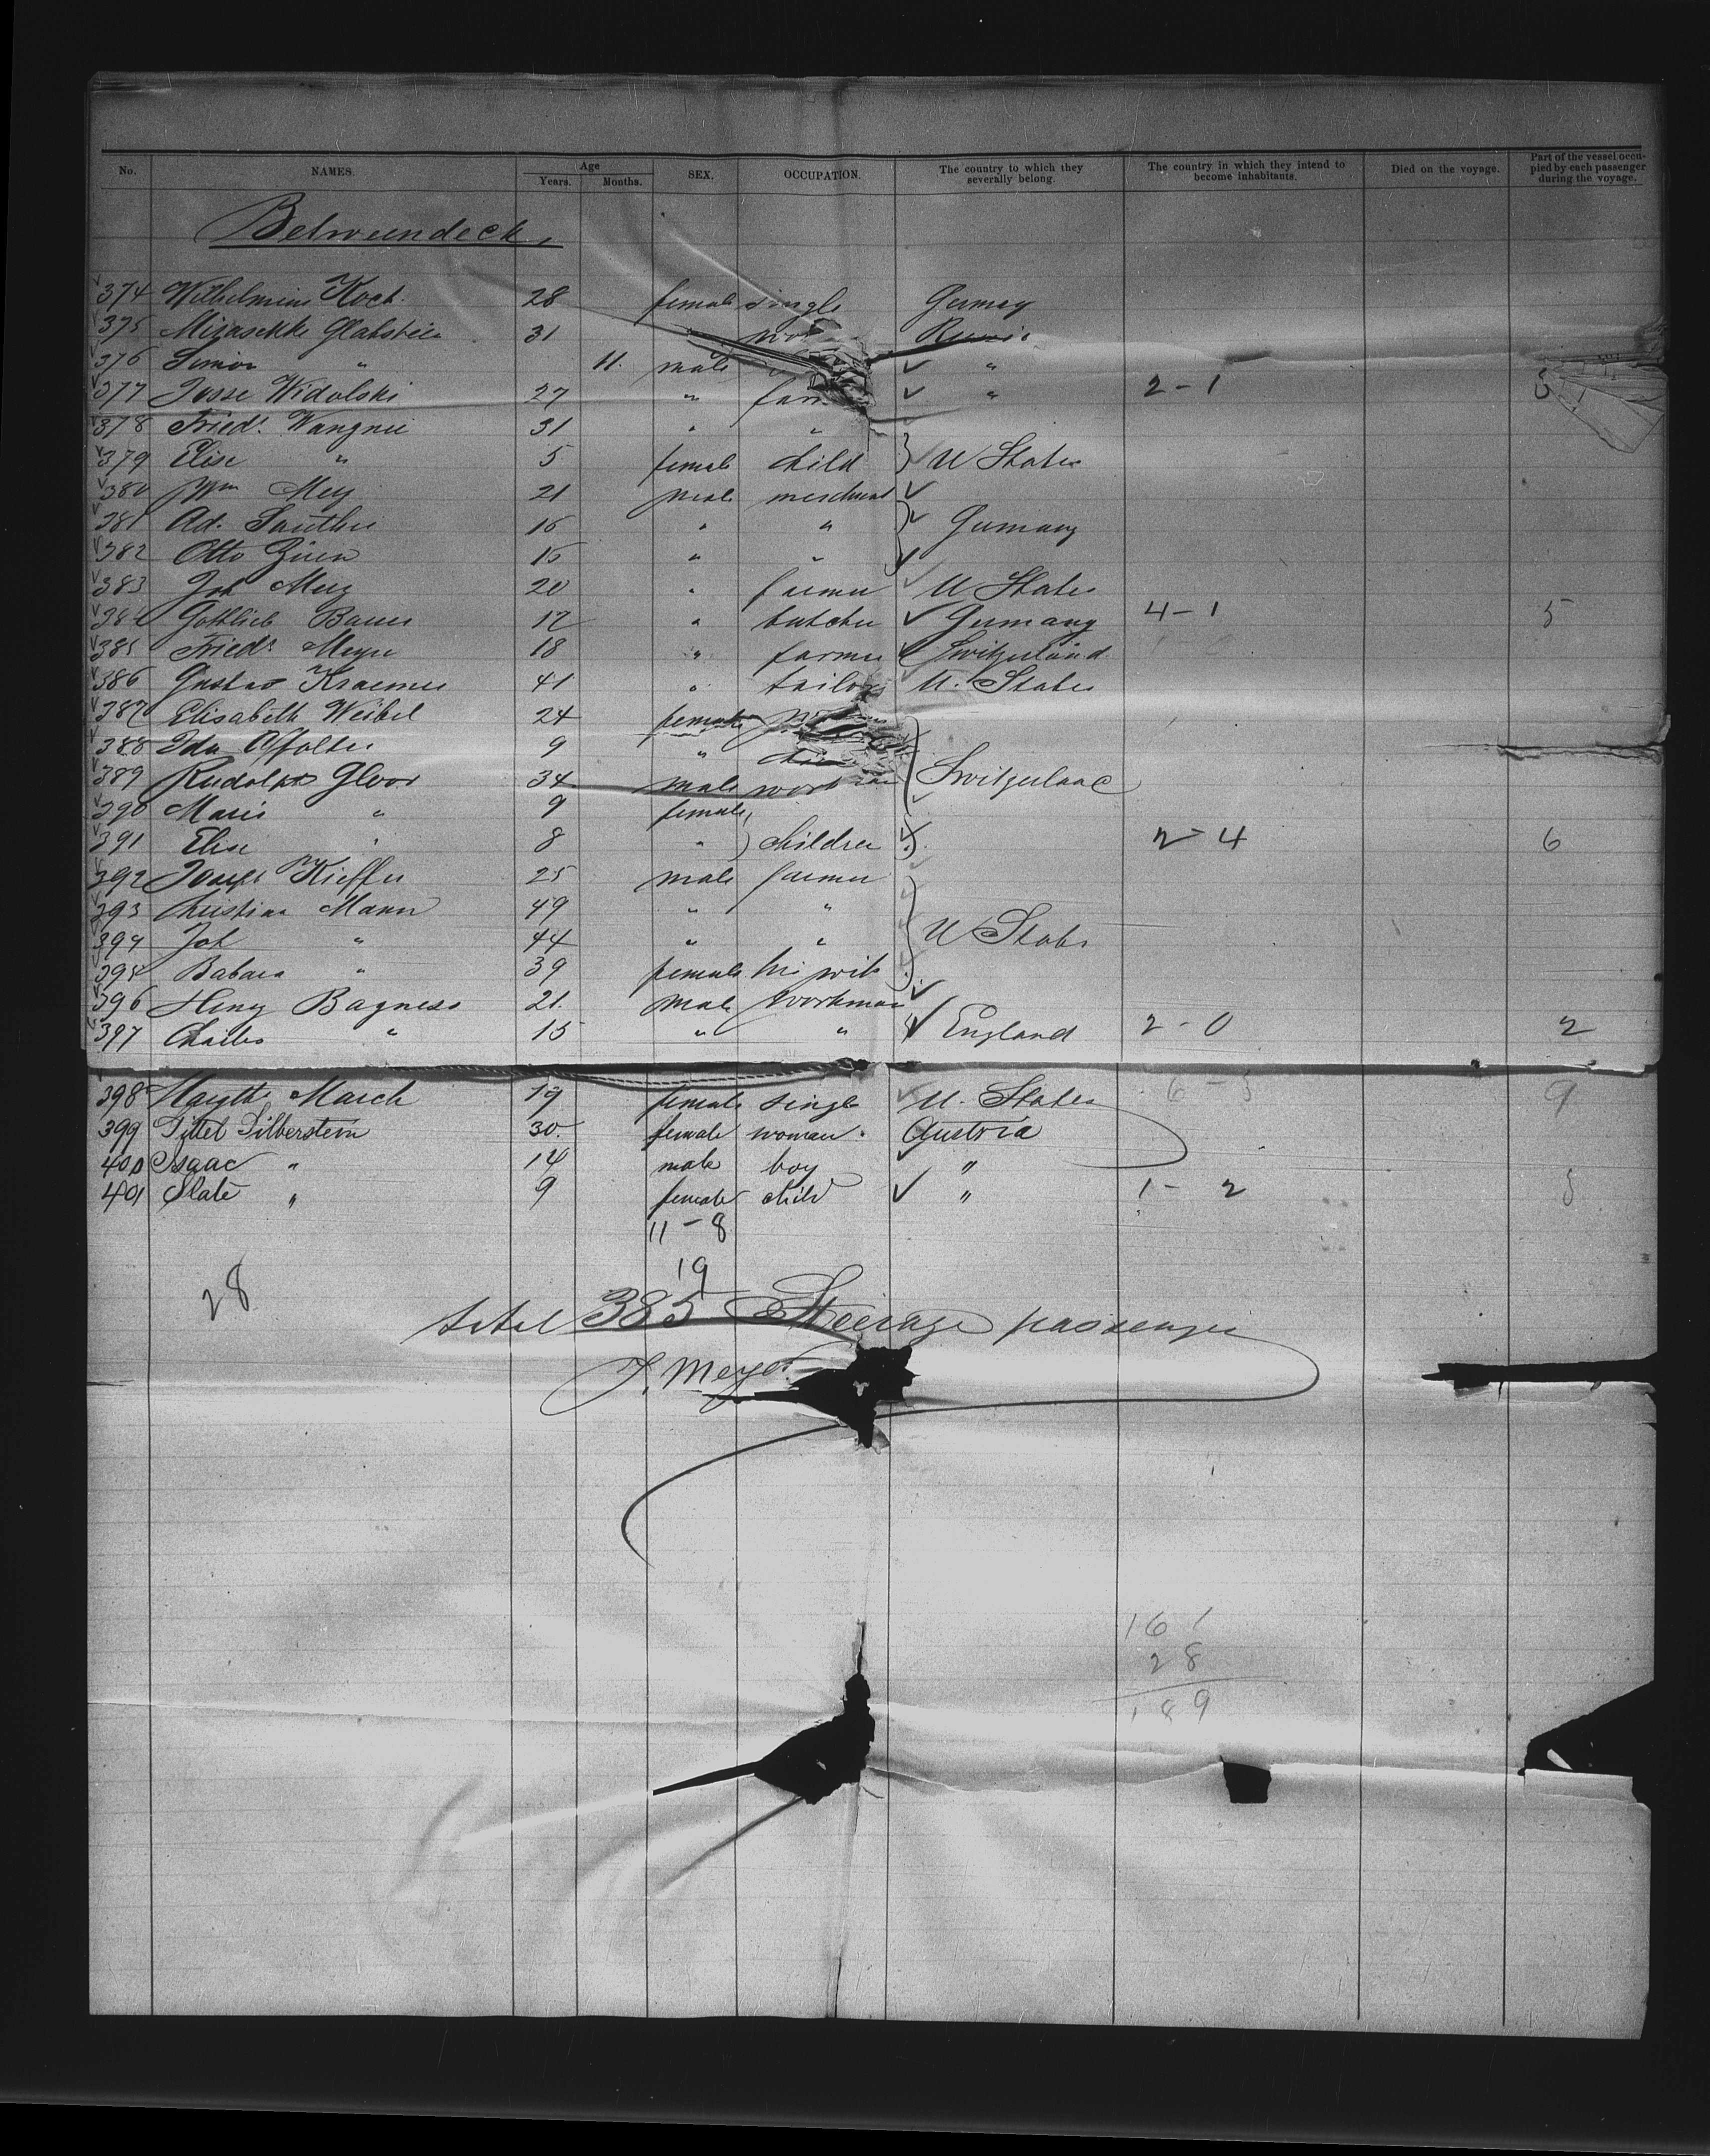 No. NAMES. Age Years. Months. SEX. OCCUPATION. The country to which they severally belong. The country in which they intend to become inhabitants. Died on the voyage. Part of the vessel occupied by each passenger during the voyage.
Betweendeck.
374 Wilhelmine Koch 28 female single Germany
375 Glabstein 31 " Russia
376 Simon " 11. male "
377 Josse Widolski 27 " " 2-1
378 Friedr. 31 " "
379 Elise " 5 female child U States
380 Wm Mey 21 male merchant
381 Ad. 16 " " Germany
382 Otto 15 " "
383 Joh Mey 20 " farmer U States
384 Gottlieb Bauer 17 " butcher Germany 4-1 5
385 Friedr Meyer 18 " farmer Switzerland
386 Gustav Kraemer 41 " tailor U. States
387 Elisabeth Weibel 24 female
388 Ida Affolter 9 "
389 Rudolph Gloor 34 male workman Switzerland
390 Marie " 9 female
391 Elise " 8 " children 2-4 6
392 Joseph Kieffer 25 male farmer
393 Christian Mann 49 " "
394 Joh " 44 " " U States
395 Babara " 39 female his wife
396 Henry Bagness 21 male workman
397 Charles " 15 " " England 2-0 2
398 March 19 female single U. States 6-3 9
399 Tittel Silberstein 30. female woman. Austria
400 Isaac " 14 male boy "
401 Slate " 9 female child " 1-2 8
11-8
19
28
total 385 Steerage passenger
J. Meyer.
161
28
189